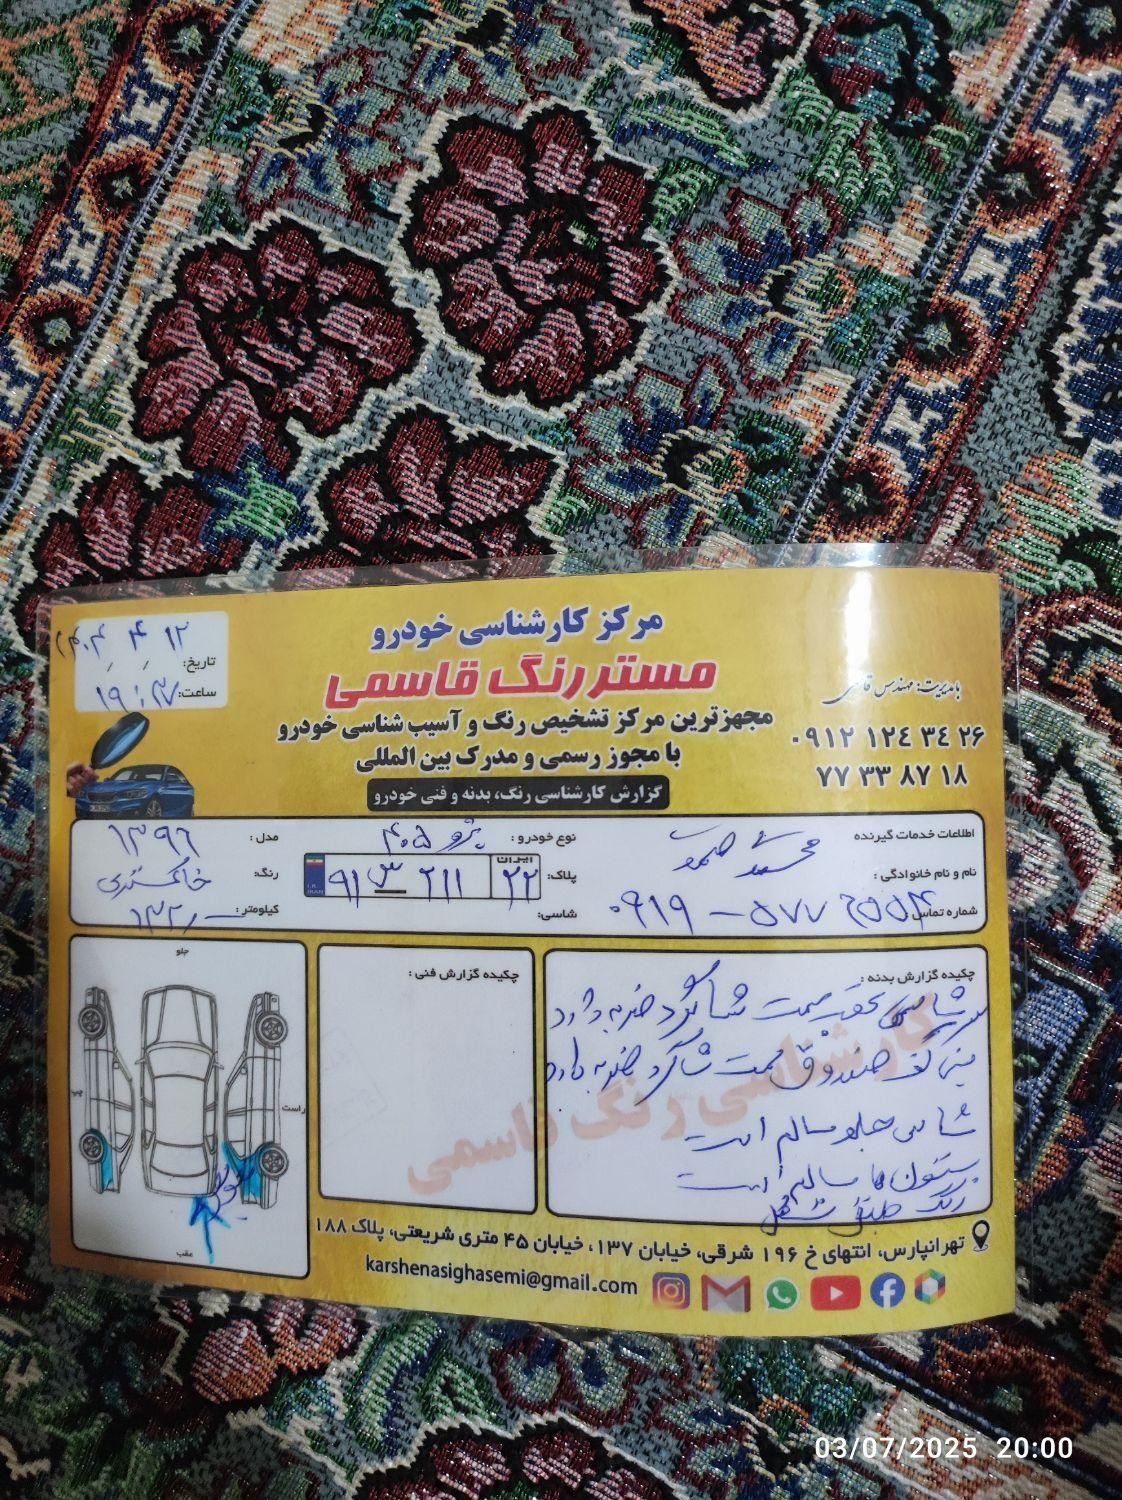 مرکز کارشناسی خودرو
مستر رنگ قاسمی
مجهزترین مرکز تشخیص رنگ و آسیب شناسی خودرو
با مجوز رسمی و مدرک بین المللی
گزارش کارشناسی رنگ، بدنه و فنی خودرو
با مدیریت: مهندس قاسمی
۰۹۱۲ ۱۲۴ ۳۴ ۲۶
۷۷ ۳۳ ۸۷ ۱۸
تاریخ: ۱۴۰۴/۴/۱۲
ساعت: ۱۹:۳۷
اطلاعات خدمات گیرنده
نوع خودرو : پژو ۴۰۵
مدل : ۱۳۹۶
نام و نام خانوادگی :
پلاک: ایران ۲۲ ۲۱۱ س ۹۱
I.R. IRAN
رنگ: خاکستری
شماره تماس: ۰۹۱۹ – ۵۷۷
شاسی:
کیلومتر :
چکیده گزارش بدنه :
سرشاسی عقب سمت شاگرد ضربه دارد
سینی کف صندوق سمت شاگرد ضربه دارد
شاسی جلو سالم است
ستون ها سالم است
رنگ طبق شکل
چکیده گزارش فنی :
جلو
چپ
راست
تعویض
عقب
کارشناسی رنگ قاسمی
تهرانپارس، انتهای خ ۱۹۶ شرقی، خیابان ۱۳۷، خیابان ۴۵ متری شریعتی، پلاک ۱۸۸
karshenasighasemi@gmail.com
03/07/2025 20:00